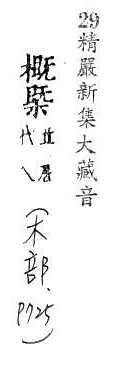 29精嚴新集大藏音
概槩並居代乀(木部.P725)